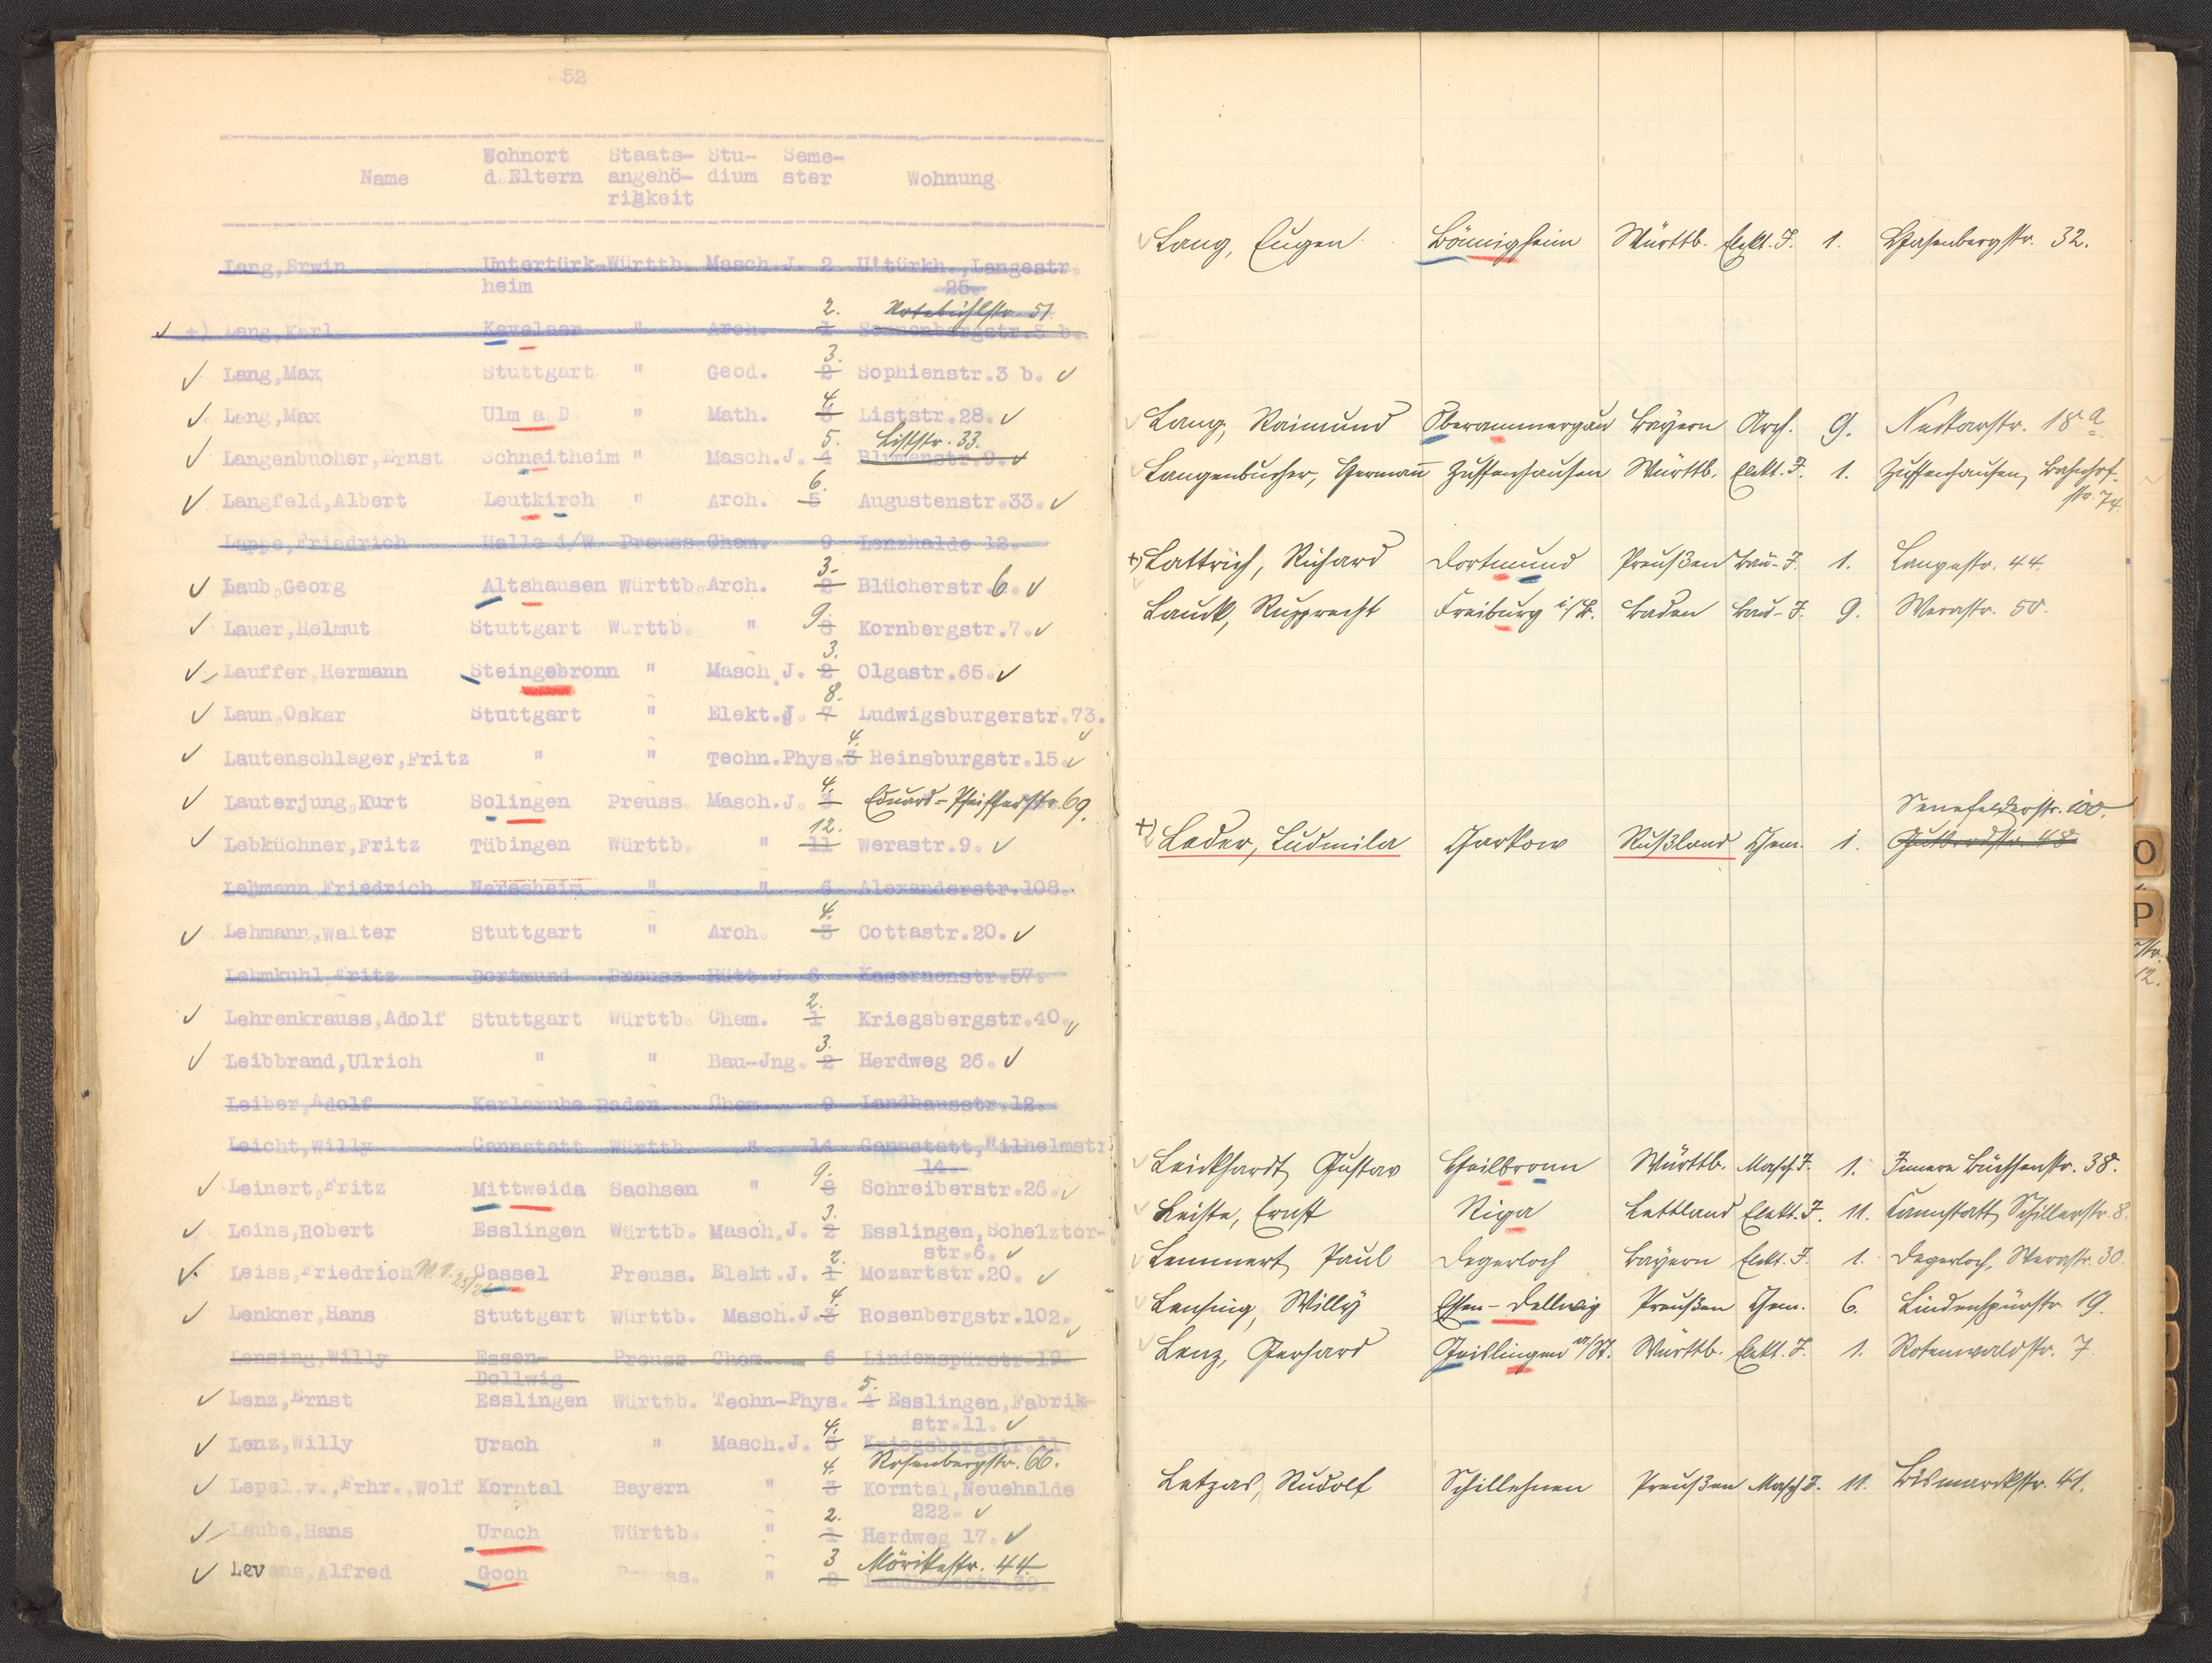 52
Wohnort Staats- Stu- Seme-
Name d.Eltern angehö- dium ster Wohnung
rigkeit
Lang,Erwin Untertürk- Württb. Masch.J. 2 U'türkh.,Langestr.
heim 25.
2. Rotebühlstr. 51.
+) Lang,Karl Kevelaer " Arch. 1 Sonnenbergstr.5 b.
3.
Lang,Max Stuttgart " Geod. 2 Sophienstr.3 b.
4.
Lang,Max Ulm a D. " Math. 3 Liststr.28.
5. Liststr. 33.
Langenbucher,Ernst Schnaitheim " Masch.J. 4 Blumenstr.9.
6.
Langfeld,Albert Leutkirch " Arch. 5 Augustenstr.33.
Lappe,Friedrich Halle i/W. Preuss. Chem. 9 Lenzhalde 12.
3.
Laub,Georg Altshausen Württb. Arch. 2 Blücherstr. 6.
9.
Lauer,Helmut Stuttgart Württb. " 8 Kornbergstr.7.
3.
Lauffer,Hermann Steingebronn " Masch.J. 2 Olgastr.65.
8.
Laun,Oskar Stuttgart " Elekt.J. 7 Ludwigsburgerstr.73.
4.
Lautenschlager,Fritz " " Techn.Phys. 3 Reinsburgstr.15.
4.
Lauterjung,Kurt Solingen Preuss. Masch.J. 3 Eduard-Pfeifferstr. 69.
12.
Lebküchner,Fritz Tübingen Württb. " 11 Werastr.9.
Lehmann,Friedrich Neresheim " " 6 Alexanderstr.108.
4.
Lehmann,Walter Stuttgart " Arch. 3 Cottastr.20.
Lehmkuhl,Fritz Dortmund Preuss. Hütt.J. 6 Kasernenstr.57.
2.
Lehrenkrauss,Adolf Stuttgart Württb. Chem. 1 Kriegsbergstr.40.
3.
Leibbrand,Ulrich " " Bau-Jng. 2 Herdweg 26.
Leiber,Adolf Karlsruhe Baden Chem. 9 Landhausstr.12.
Leicht,Willy Cannstatt Württb. " 14 Cannstatt,Wilhelmstr
14.
9.
Leinert,Fritz Mittweida Sachsen " 8 Schreiberstr.26.
3.
Leins,Robert Esslingen Württb. Masch.J. 2 Esslingen,Schelztor-
str.6.
2.
Leiss,Friedrich Cassel Preuss. Elekt.J. 1 Mozartstr.20.
4.
Lenkner,Hans Stuttgart Württb. Masch.J. 3 Rosenbergstr.102.
Lensing,Willy Essen- Preuss. Chem. 6 Lindenspürstr.19.
Dollwig
5.
Lenz,Ernst Esslingen Württb. Techn-Phys. 4 Esslingen,Fabrik-
str.11.
4.
Lenz,Willy Urach " Masch.J. 3 Kriegsbergstr.11.
4. Rosenbergstr. 66.
Lepel.v.,Frhr.,Wolf Korntal Bayern " 3 Korntal,Neuehalde
222.
2.
Leube,Hans Urach Württb. " 1 Herdweg 17.
3 Mörikestr. 44.
Levens,Alfred Goch Preuss. " 2 Landhausstr.39.
Lang, Eugen Bönnigheim Württb. Elekt. J. 1. Hasenbergstr. 32.
Lang, Raimund Oberammergau Bayern Arch. 9. Neckarstr. 18 a
Langenbucher, Hermann Zuffenhausen Württb. Elekt. J. 1. Zuffenhausen, Bahnhof-
str. 74.
+) Lattrich, Richard Dortmund Preußen Bau-J. 1. Langestr. 44.
Lauck, Rupprecht Freiburg i/B. Baden Bau-J. 9. Werastr. 50.
Senefelderstr. 100.
+) Leder, Ludmila Charkow Rußland Chem. 1. Gutbrodstr. 48
Leickhardt, Gustav Heilbronn Württb. Masch J. 1. Innere Büchsenstr. 38.
Leiste, Ernst Riga Lettland Elekt. J. 11. Cannstatt, Schillerstr. 8.
Lemmert, Paul Degerloch Bayern Elekt. J. 1. Degerloch, Werastr. 30.
Lensing, Willy Essen-Dellwig Preußen Chem. 6. Lindenspürstr. 19.
Lenz, Gerhard Geislingen a/St. Württb. Elekt. J. 1. Rotenwaldstr. 7.
Letzas, Rudolf Schillehnen Preußen Masch J. 11. Bismarckstr. 41.
O
P
str.
12.